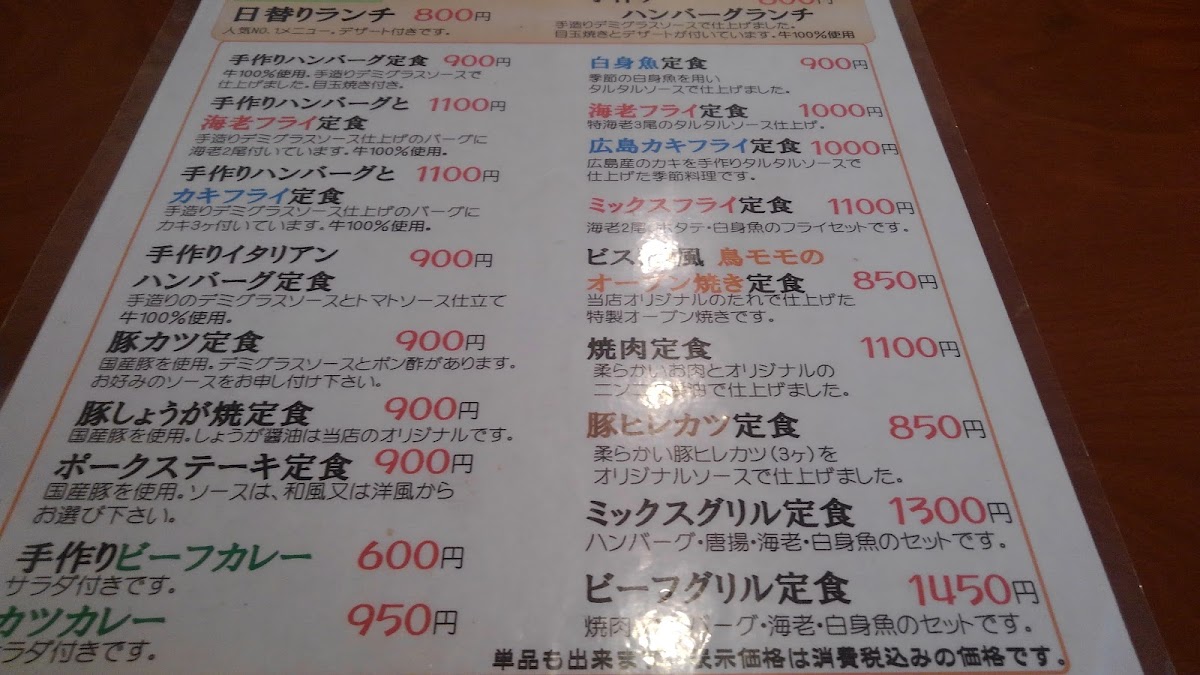 日替りランチ 800円
人気NO.1メニュー。デザート付きです。
ハンバーグランチ
手造りデミグラスソースで仕上げました。
目玉焼きとデザートが付いています。牛100%使用
手作りハンバーグ定食 900円
牛100%使用。手造りデミグラスソースで
仕上げました。目玉焼き付き。
手作りハンバーグと 1100円
海老フライ定食
手造りデミグラスソース仕上げのバーグに
海老2尾付いています。牛100%使用。
手作りハンバーグと 1100円
カキフライ定食
手造りデミグラスソース仕上げのバーグに
カキ3ヶ付いています。牛100%使用。
手作りイタリアン 900円
ハンバーグ定食
手造りのデミグラスソースとトマトソース仕立て
牛100%使用。
豚カツ定食 900円
国産豚を使用。デミグラスソースとポン酢があります。
お好みのソースをお申し付け下さい。
豚しょうが焼定食 900円
国産豚を使用。しょうが醤油は当店のオリジナルです。
ポークステーキ定食 900円
国産豚を使用。ソースは、和風又は洋風から
お選び下さい。
手作りビーフカレー 600円
サラダ付きです。
カツカレー 950円
ラダ付きです。
白身魚定食 900円
季節の白身魚を用い
タルタルソースで仕上げました。
海老フライ定食 1000円
特海老3尾のタルタルソース仕上げ。
広島カキフライ定食 1000円
広島産のカキを手作りタルタルソースで
仕上げた季節料理です。
ミックスフライ定食 1100円
海老2尾・ホタテ・白身魚のフライセットです。
ビス 風 鳥モモの
オーブン焼き定食 850円
当店オリジナルのたれで仕上げた
特製オーブン焼きです。
焼肉定食 1100円
柔らかいお肉とオリジナルの
ニンニク醤油で仕上げました。
豚ヒレカツ定食 850円
柔らかい豚ヒレカツ(3ヶ)を
オリジナルソースで仕上げました。
ミックスグリル定食 1300円
ハンバーグ・唐揚・海老・白身魚のセットです。
ビーフグリル定食 1450円
焼肉・ハンバーグ・海老・白身魚のセットです。
単品も出来ます。表示価格は消費税込みの価格です。